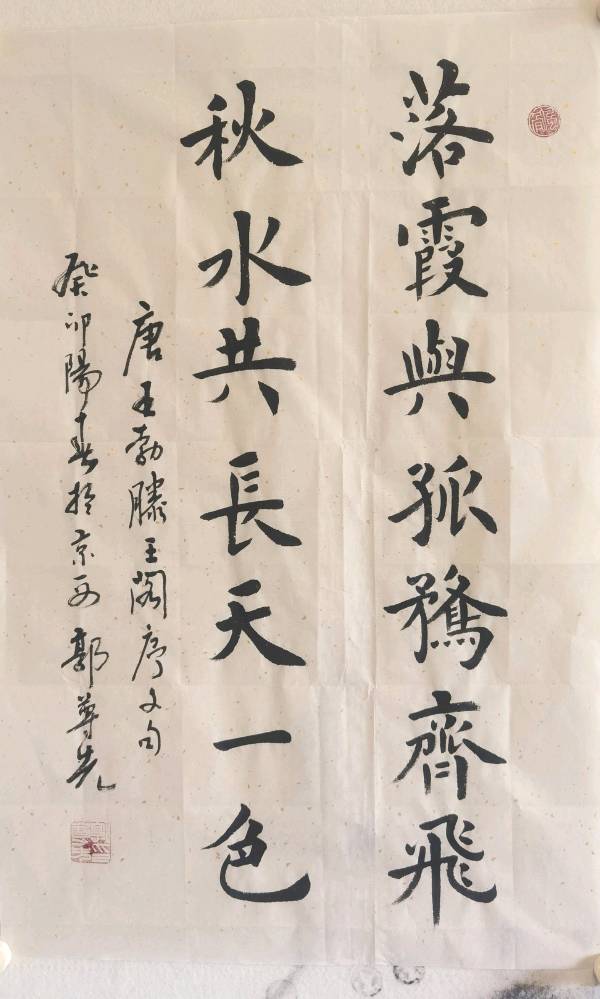 落霞與孤鶩齊飛
秋水共長天一色
唐王勃滕王閣序文句
癸卯陽春於京西郭尊先